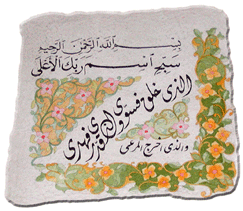 بسم الله الرحمن الرحيم
سبح اسم ربك الأعلى
الذى خلق فسوى
والذى قدر فهدى
والذى أخرج المرعى